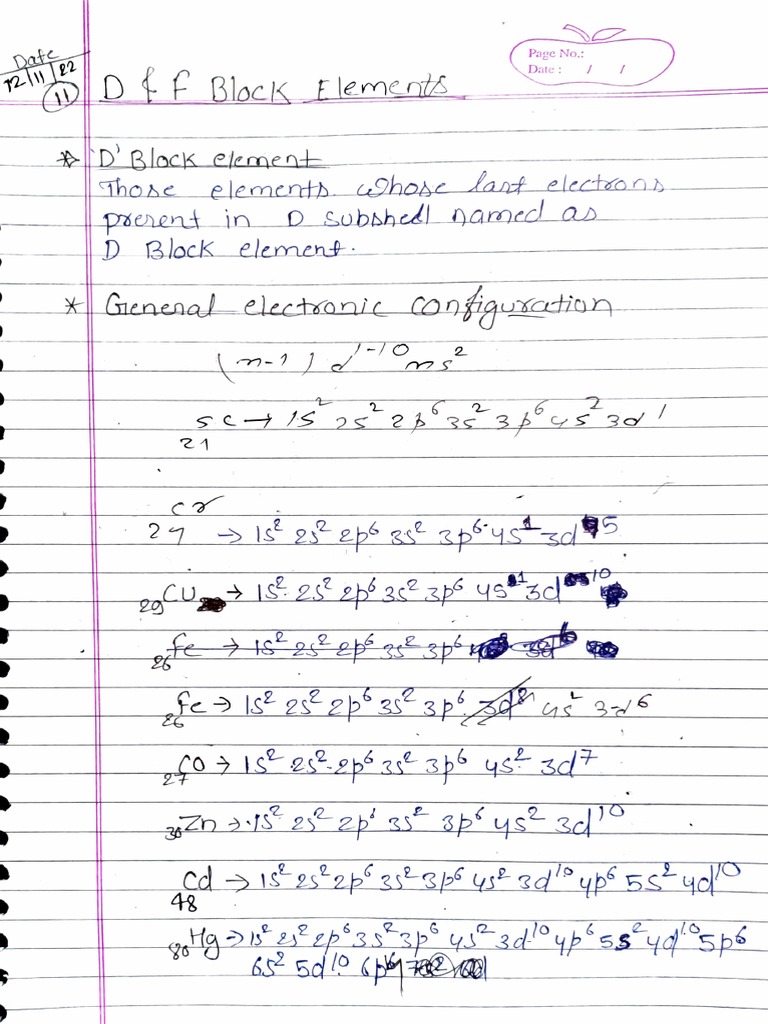 Date
12/11/22
11
Page No.:
Date : / /
D & F Block Elements
* 'D' Block element
Those elements whose last electrons
present in D subshell named as
D Block element.
* General electronic configuration
(n-1) d¹⁻¹⁰ ns²
₂₁Sc → 1s² 2s² 2p⁶ 3s² 3p⁶ 4s² 3d¹
Cr → 1s² 2s² 2p⁶ 3s² 3p⁶ 4s¹ 3d⁵
₂₉Cu → 1s² 2s² 2p⁶ 3s² 3p⁶ 4s¹ 3d¹⁰
₂₆fe → 1s² 2s² 2p⁶ 3s² 3p⁶
₂₆fe → 1s² 2s² 2p⁶ 3s² 3p⁶ 4s² 3d⁶
₂₇CO → 1s² 2s² 2p⁶ 3s² 3p⁶ 4s² 3d⁷
₃₀Zn → 1s² 2s² 2p⁶ 3s² 3p⁶ 4s² 3d¹⁰
₄₈Cd → 1s² 2s² 2p⁶ 3s² 3p⁶ 4s² 3d¹⁰ 4p⁶ 5s² 4d¹⁰
₈₀Hg → 1s² 2s² 2p⁶ 3s² 3p⁶ 4s² 3d¹⁰ 4p⁶ 5s² 4d¹⁰ 5p⁶
6s² 5d¹⁰ 6p⁶